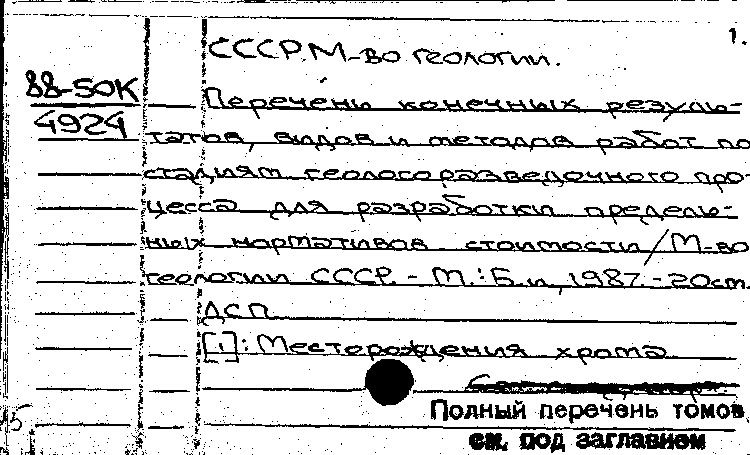 1.
СССР. М-во геологии.
88-50К
4924
Перечень конечных резуль-
татов, видов и методов работ по
стадиям геологоразведочного про-
цесса для разработки предель-
ных нормативов стоимости / М-во
геологии СССР. - М.: Б.и, 1987. - 20см.
ДСП
[1]: Месторождения хрома
Полный перечень томов
см. под заглавием